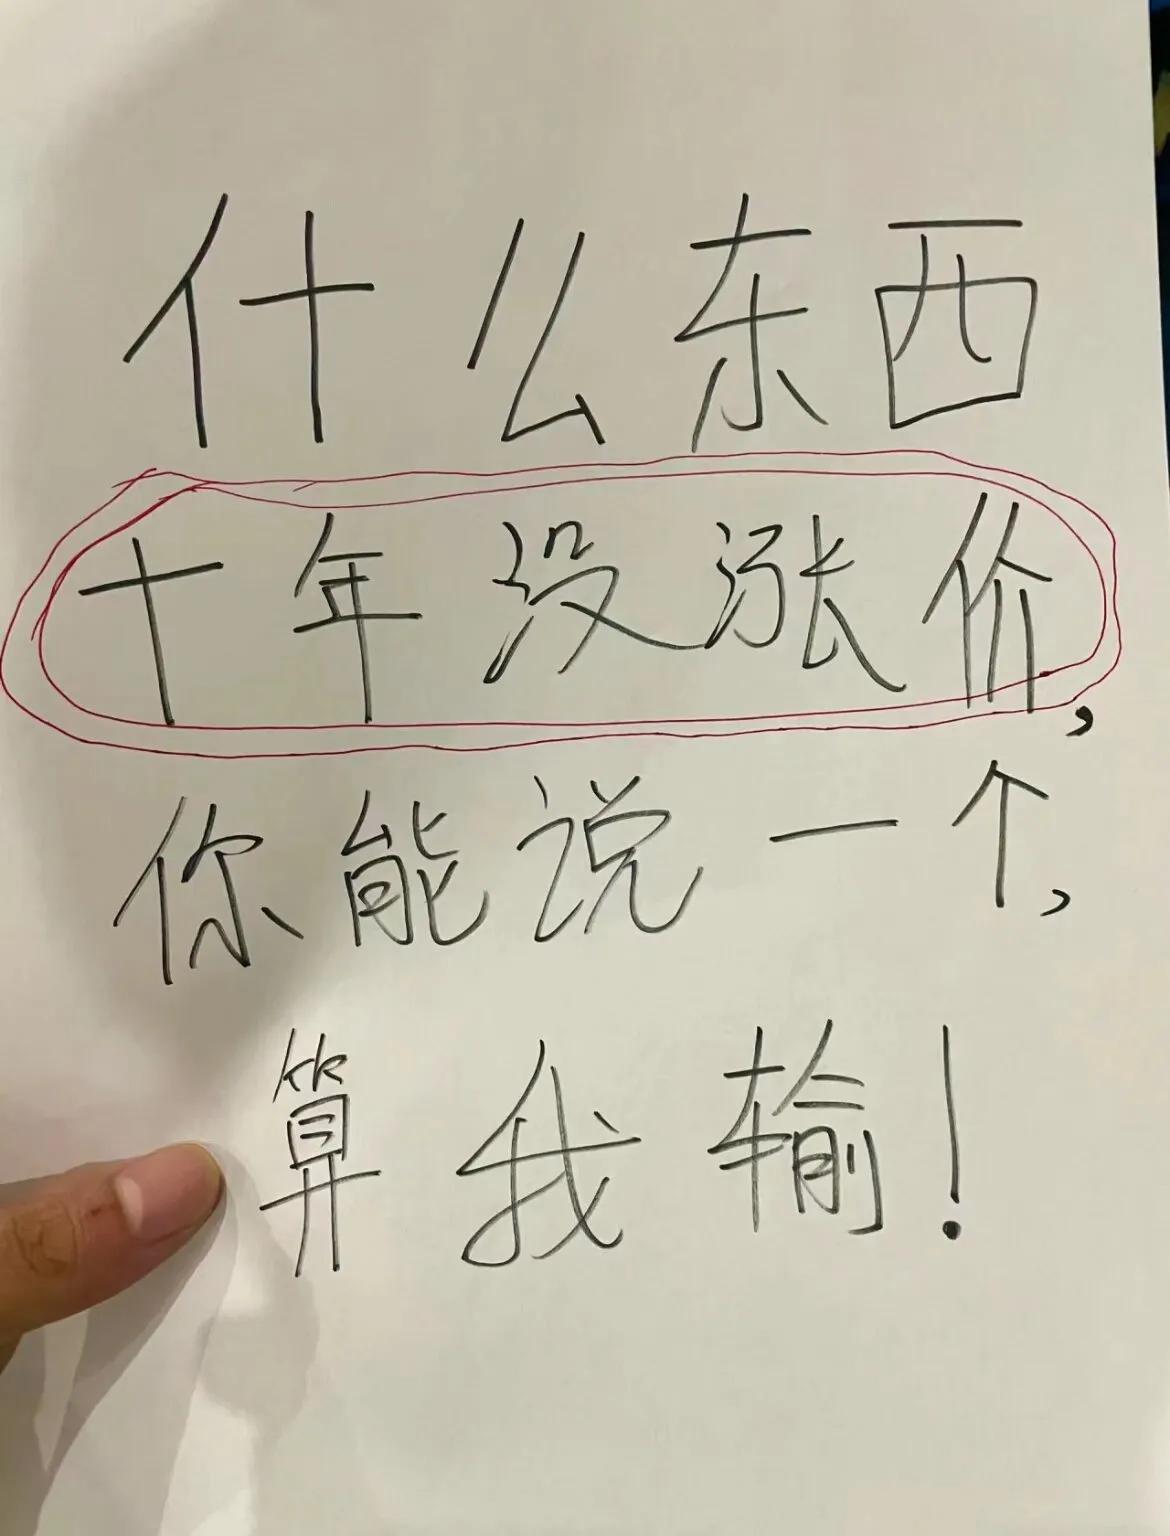 什么东西
十年没涨价，
你能说一个，
算我输！